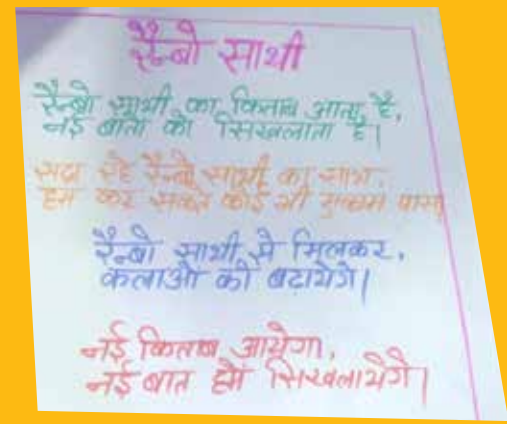 रैन्बो साथी
रैन्बो साथी का किताब आता है,
नई बातो को सिखलाता है।
सदा रहे रैन्बो साथी का साथ,
हम कर सकते कोई भी पास
रैन्बो साथी से मिलकर,
कलाओ को बढायेगे।
नई किताब आयेगा,
नई बात हमे सिखलायेगे।